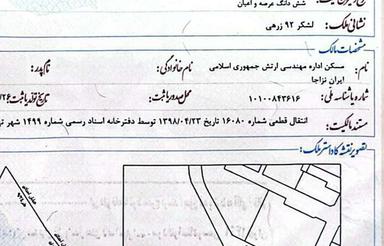 شش دانگ عرصه و اعیان
نشانی ملک: لشکر ۹۲ زرهی
مشخصات مالک
نام: مسکن اداره مهندسی ارتش جمهوری اسلامی ایران نزاجا نام خانوادگی: نام پدر:
شماره شناسه ملی: ۱۰۱۰۰۸۴۳۶۱۶ محل صدور یا ثبت: تاریخ تولد یا ثبت:
مستند مالکیت: انتقال قطعی شماره ۱۶۰۸۰ تاریخ ۱۳۹۸/۰۴/۲۳ توسط دفترخانه اسناد رسمی شماره ۱۴۹۹ شهر
تصویر نقشه کاداستر ملک: